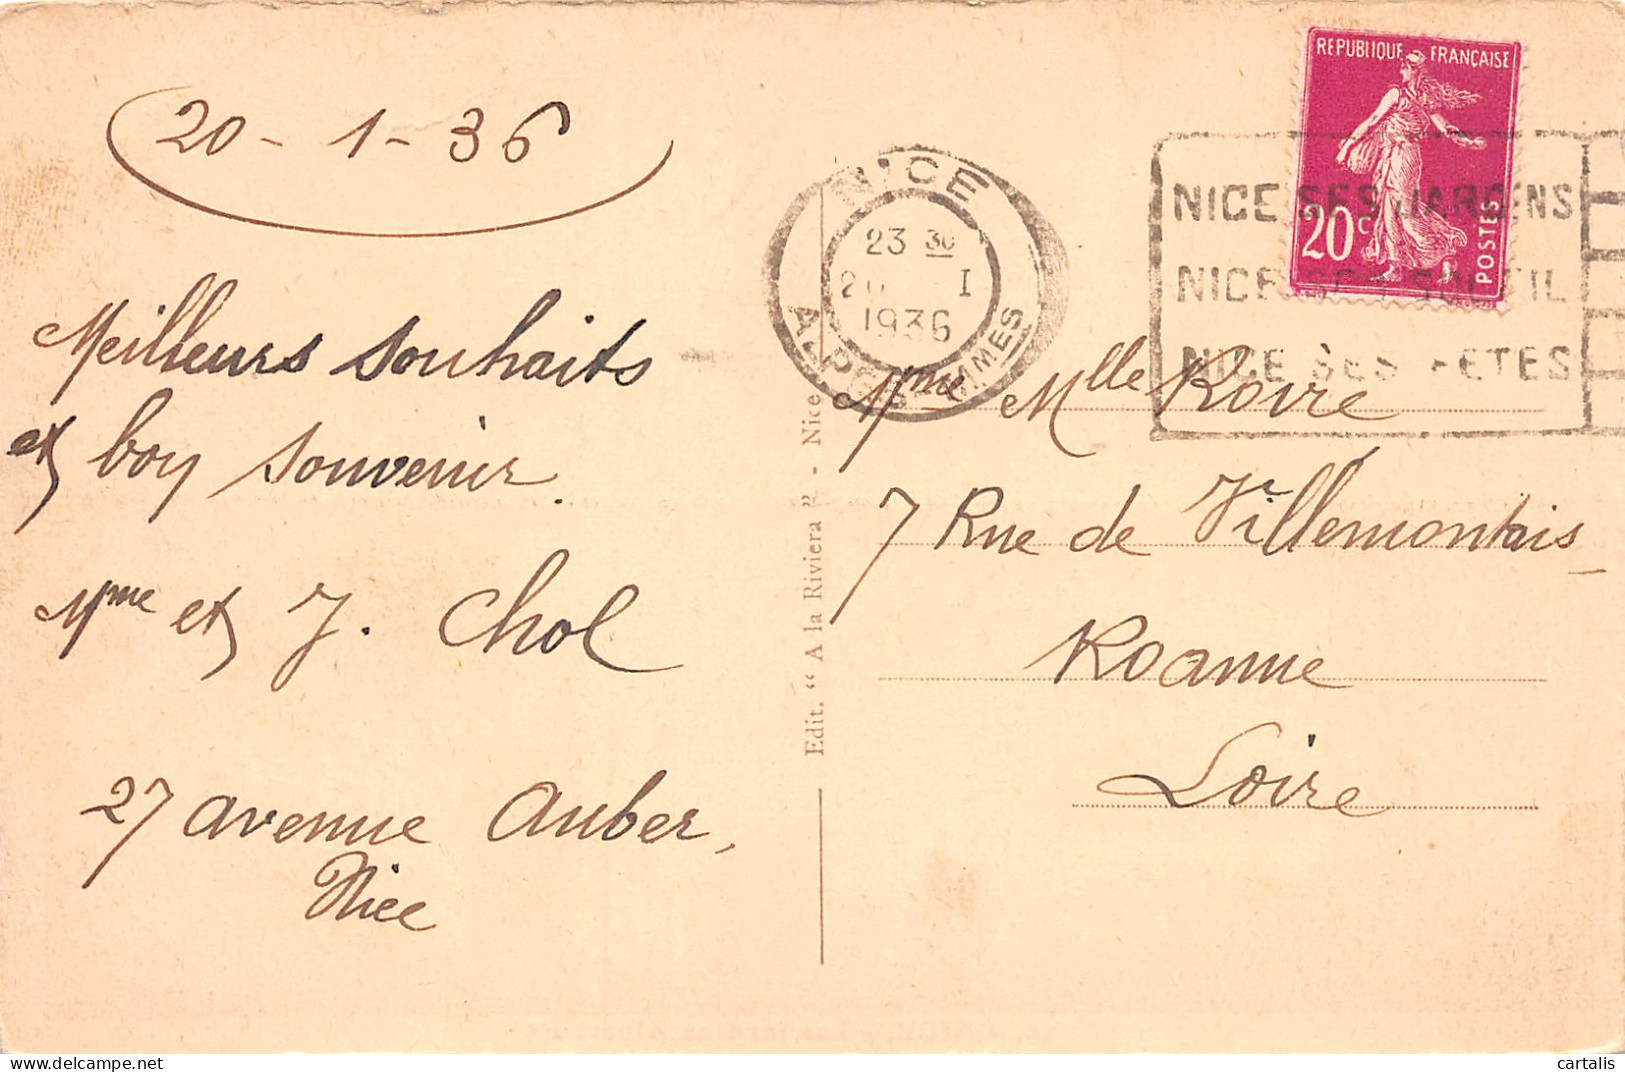 20 - 1 - 36
Meilleurs souhaits
et bon souvenir.
Mme et J. Chol
27 avenue Auber,
Nice
Edit. “ A la Riviera ” - Nice
NICE
23 30
I
1936
REPUBLIQUE FRANÇAISE
20c
POSTES
NICE SES JARDINS
NICE SON SOLEIL
NICE SES FETES
Mme Mlle Roire
7 Rue de Villemontais
Roanne
Loire
cartalis